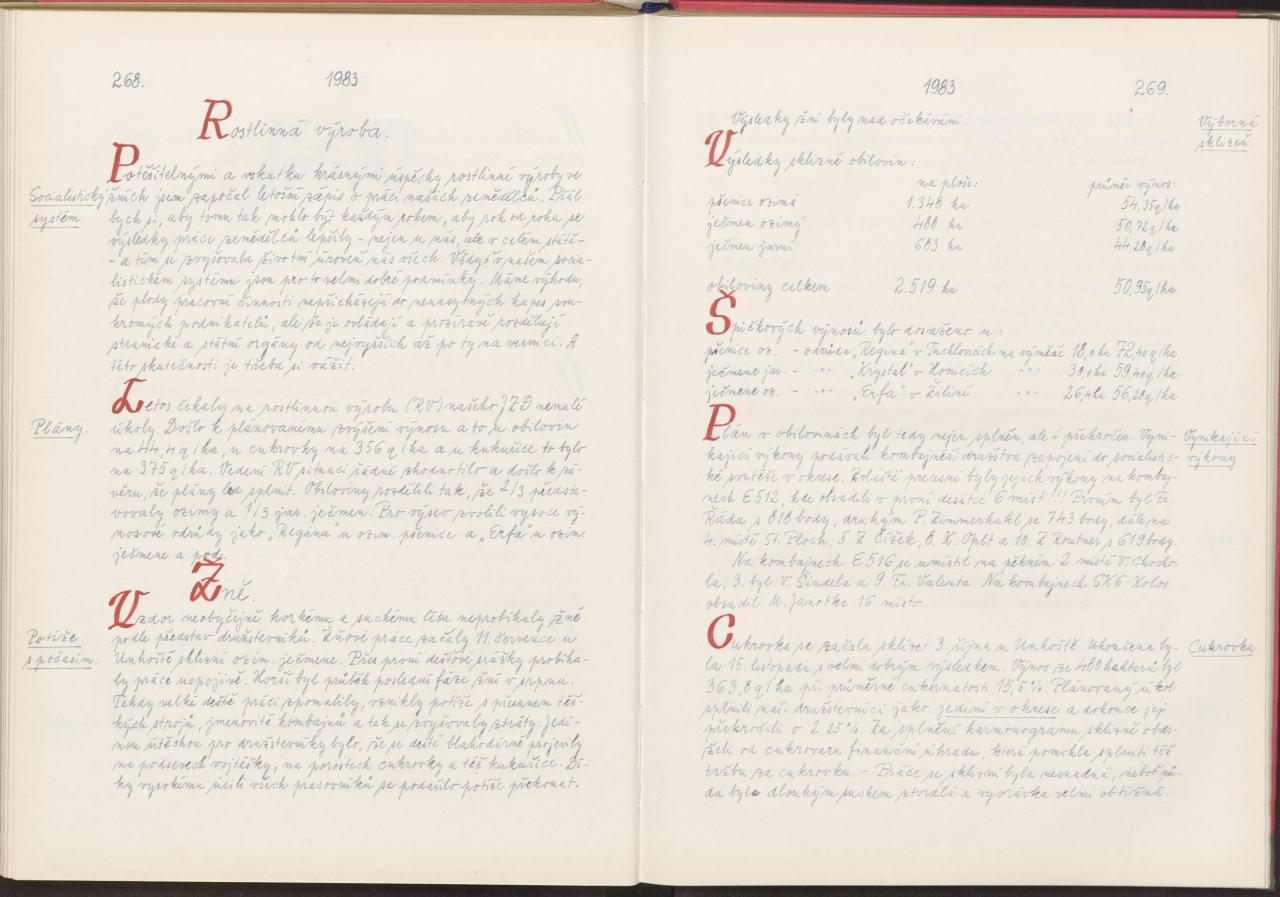 268.
1983
Rostlinná výroba.
Potěšitelnými a vskutku krásnými úspěchy rostlinné výroby ve
Socialistický
systém
žních jsem započal letošní zápis o práci našich zemědělců. Přál
bych si, aby tomu tak mohlo být každým rokem, aby rok od roku se
výsledky práce zemědělců lepšily - nejen u nás, ale v celém státě-
- a tím se zvyšovala životní úroveň nás všech. Vždyť v našem socia-
listickém systému jsou pro to velmi dobré podmínky. Máme výhodu,
že plody pracovní činnosti nepřicházejí do nenasytných kapes sou-
kromých podnikatelů, ale že je ovládají a prozíravě rozdělují
stranické a státní orgány od nejvyšších až po ty na vesnici. A
této skutečnosti je třeba si vážit.
Letos čekaly na rostlinnou výrobu (RV) našeho JZD nemalé
Plány.
úkoly. Došlo k plánovanému zvýšení výnosu a to u obilovin
na 44,4 q/ha, u cukrovky na 356 q/ha a u kukuřice to bylo
na 375 q/ha. Vedení RV situaci řádně zhodnotilo a došlo k zá-
věru, že plány lze splnit. Obiloviny rozdělili tak, že 2/3 předsta-
vovaly ozimy a 1/3 jar. ječmen. Pro výsev zvolili vysoce vý-
nosové odrůdy jako „Regina" u ozim. pšenice a „Erfa" u ozim.
ječmene a pod.
Žně.
Vzdor neobyčejně horkému a suchému létu neprobíhaly žně
Potíže
s počasím.
podle představ družstevníků. Žňové práce začaly 11. července u
Unhoště sklizní ozim. ječmene. Přes první dešťové srážky probíha-
ly práce uspojivě. Horší byl průběh poslední fáze žní v srpnu.
Tehdy velké deště práci zpomalily, vznikly potíže s přesunem těž-
kých strojů, jmenovitě kombajnů a tak se zvyšovaly ztráty. Jedi-
nou útěchou pro družstevníky bylo, že se deště blahodárně projevily
na podsevech vojtěšky, na porostech cukrovky a též kukuřice. Dí-
ky vysokému úsilí všech pracovníků se podařilo potíže překonat.
1983
269.
Výsledky žní byly nad očekávání.
Výborná
sklizeň.
Výsledky sklizně obilovin:
na ploše: průměr. výnos:
pšenice ozimá 1.348 ha 54,35q/ha
ječmen ozimý 488 ha 50,72q/ha
ječmen jarní 683 ha 44,28q/ha
obiloviny celkem 2.519 ha 50,95q/ha
Špičkových výnosů bylo dosaženo u:
pšenice oz. - odrůda „Regina" v Tuchlovicích na výměře 18,0ha 72,40q/ha
ječmene jar. - -"- „Krystal" v Honicích -"- 30,0ha 59,40q/ha
ječmene oz. - -"- „Erfa" v Žilině -"- 26,4ha 56,20q/ha
Plán v obilovinách byl tedy nejen splněn, ale i překročen. Vyni-
Vynikající
výkony
kající výkony podávali kombajnéři družstva zapojení do socialistic-
ké soutěže v okrese. Zvláště precisní byly jejich výkony na kombaj-
nech E 512, kde obsadili v první desítce 6 míst!!! Prvním byl Fr.
Řáda s 818 body, druhým P. Zimmerhakl se 743 body, dále na
4. místě St. Ploch, 5. Z. Čížek, 8. K. Oplt a 10. Z. Routner s 619 body.
Na kombajnech E 516 se umístil na pěkném 2. místě V. Chocho-
la, 3. byl V. Šindela a 9. Fr. Valenta. Na kombajnech SK6-Kolos
obsadil M. Janotka 16. místo.
Cukrovka se začala sklízet 3. října u Unhoště. Ukončena by-
Cukrovka.
la 15. listopadu s velmi dobrým výsledkem. Výnos ze 460 hektarů byl
363,8 q/ha při průměrné cukernatosti 15,5 %. Plánovaný úkol
splnili naši družstevníci jako jediní v okrese a dokonce jej
překročili o 2,25 %. Za splnění harmonogramu sklizně obdr-
želi od cukrovaru finanční úhradu, která pomohla splnit též
tržbu za cukrovku. - Práce se sklizní byla nesnadná, neboť pů-
da byla dlouhým suchem ztvrdlá a vyorávka velmi obtížná.